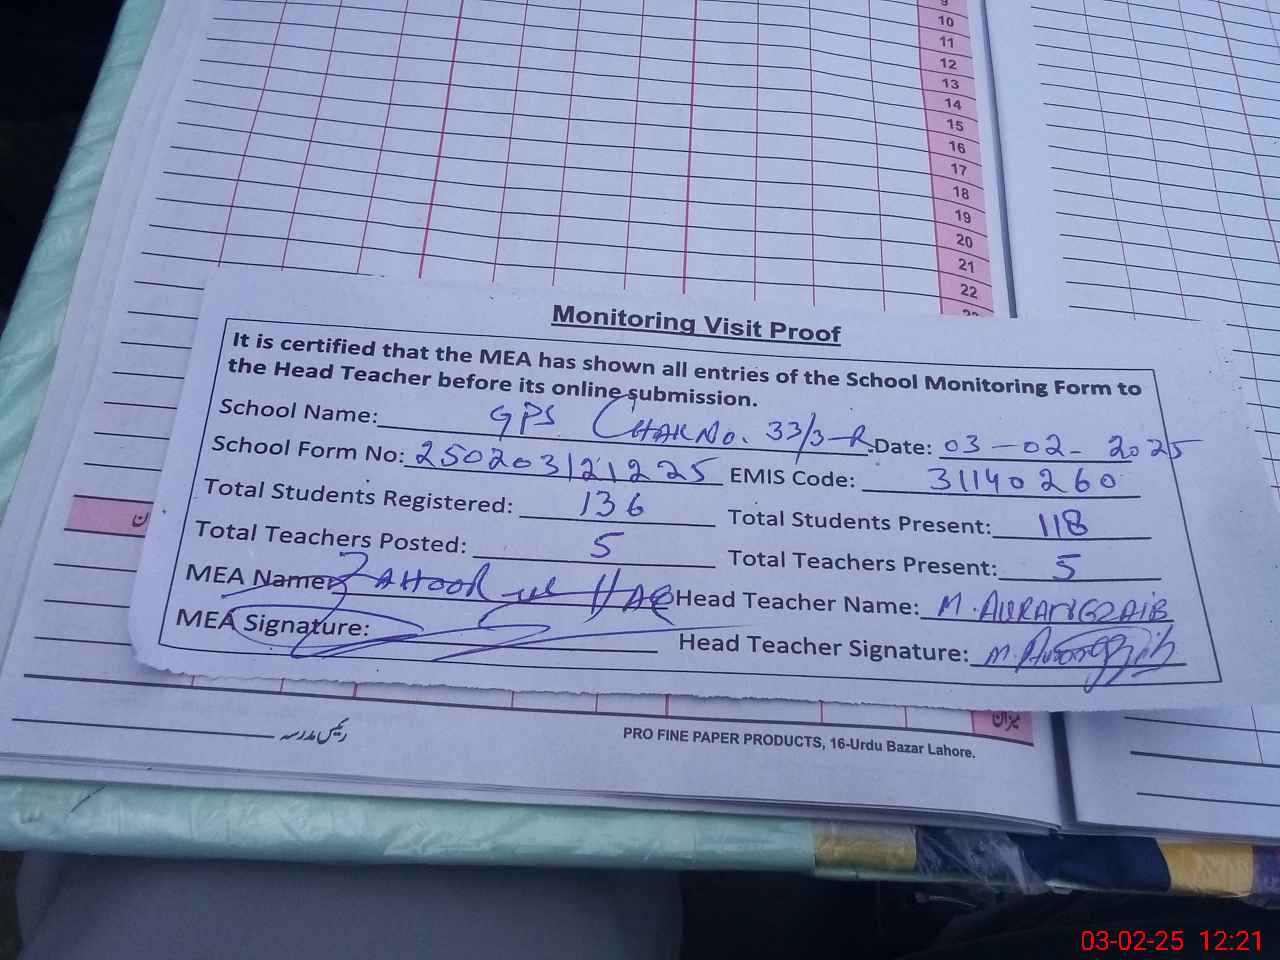 9
10
11
12
13
14
15
16
17
18
19
20
21
22
Monitoring Visit Proof
It is certified that the MEA has shown all entries of the School Monitoring Form to
the Head Teacher before its online submission.
School Name: GPS CHAK No. 33/3-R Date: 03-02-2025
School Form No: 250203121225 EMIS Code: 31140260
Total Students Registered: 136 Total Students Present: 118
Total Teachers Posted: 5 Total Teachers Present: 5
MEA Name: ZAHOOR ul HAQ Head Teacher Name: M. AURANGZAIB
MEA Signature: Head Teacher Signature: M. Aurangzaib
میزان
رئیس مدرسہ
PRO FINE PAPER PRODUCTS, 16-Urdu Bazar Lahore.
03-02-25 12:21